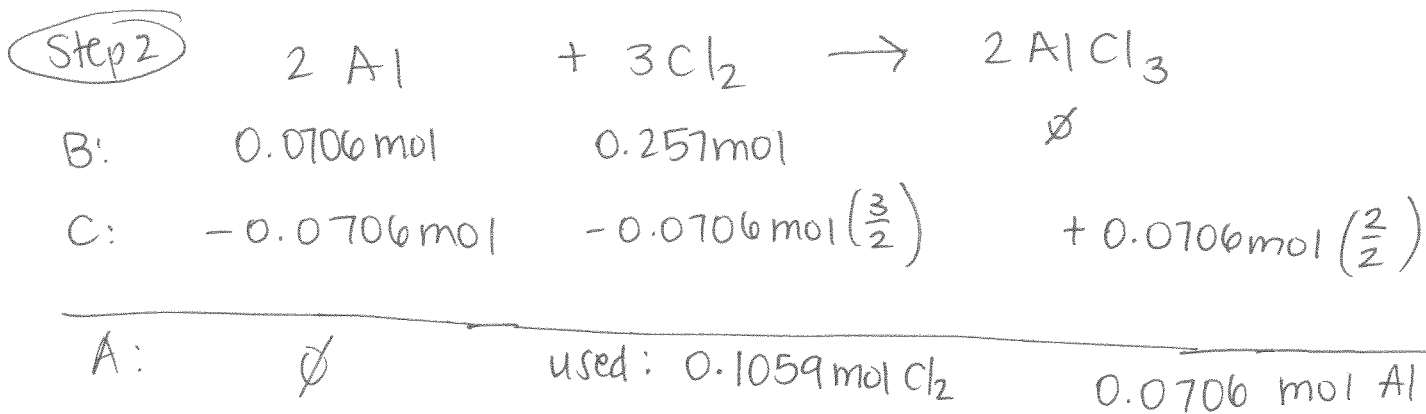 Step 2 2 Al + 3Cl₂ → 2 AlCl₃
B: 0.0706 mol 0.257mol ∅
C: -0.0706mol -0.0706 mol (3/2) + 0.0706mol (2/2)
A: ∅ used: 0.1059 mol Cl₂ 0.0706 mol Al